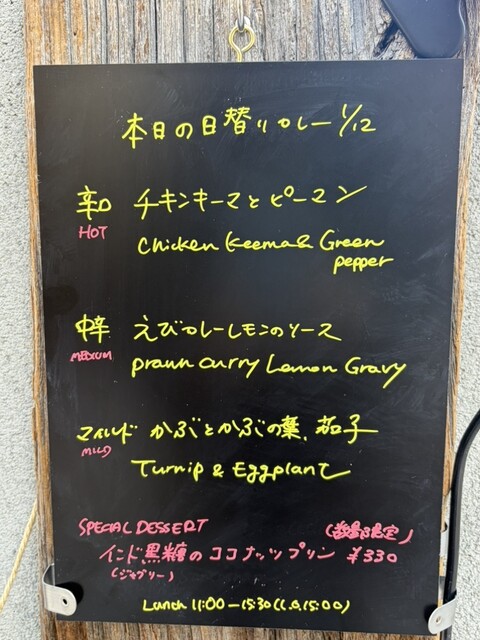 本日の日替りカレー 1/12
辛口 チキンキーマとピーマン
HOT
Chicken Keema & Green
pepper
中辛 えびカレーレモンのソース
MEDIUM
prawn curry Lemon Gravy
マイルド かぶとかぶの葉、茄子
MILD
Turnip & Eggplant
SPECIAL DESSERT (数量限定)
インド黒糖のココナッツプリン ¥330
(ジャグリー)
Lunch 11:00-15:30 (L.O 15:00)